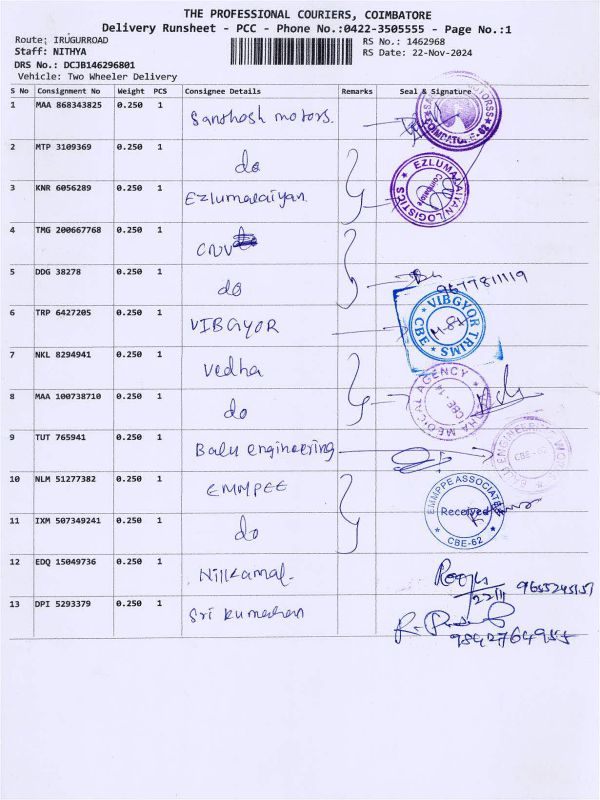 THE PROFESSIONAL COURIERS, COIMBATORE
Delivery Runsheet - PCC - Phone No.:0422-3505555 - Page No.:1
Route: IRUGURROAD RS No.: 1462968
Staff: NITHYA RS Date: 22-Nov-2024
DRS No.: DCJB146296801
Vehicle: Two Wheeler Delivery
S No Consignment No Weight PCS Consignee Details Remarks Seal & Signature
1 MAA 868343825 0.250 1 Santhosh motors.
COIMBATORE-62
2 MTP 3109369 0.250 1 do
3 KNR 6056289 0.250 1 Ezhumalaiyan
EZLUMALAIYAN LOGISTICS Coimbatore
4 TMG 200667768 0.250 1
5 DDG 38278 0.250 1 do
9677811119
6 TRP 6427205 0.250 1 VIBGYOR
VIBGYOR TRIMS CBE
7 NKL 8294941 0.250 1 Vedha
8 MAA 100738710 0.250 1 do
MEDICAL AGENCY CBE-14
9 TUT 765941 0.250 1 Balu engineering
BALU ENGINEERING WORKS CBE-62
10 NLM 51277382 0.250 1 EMMPEE
EMMPPE ASSOCIATES Received CBE-62
11 IXM 507349241 0.250 1 do
12 EDQ 15049736 0.250 1 Nillkamal.
22/11 9655245151
13 DPI 5293379 0.250 1 Sri kumaran
9842764955